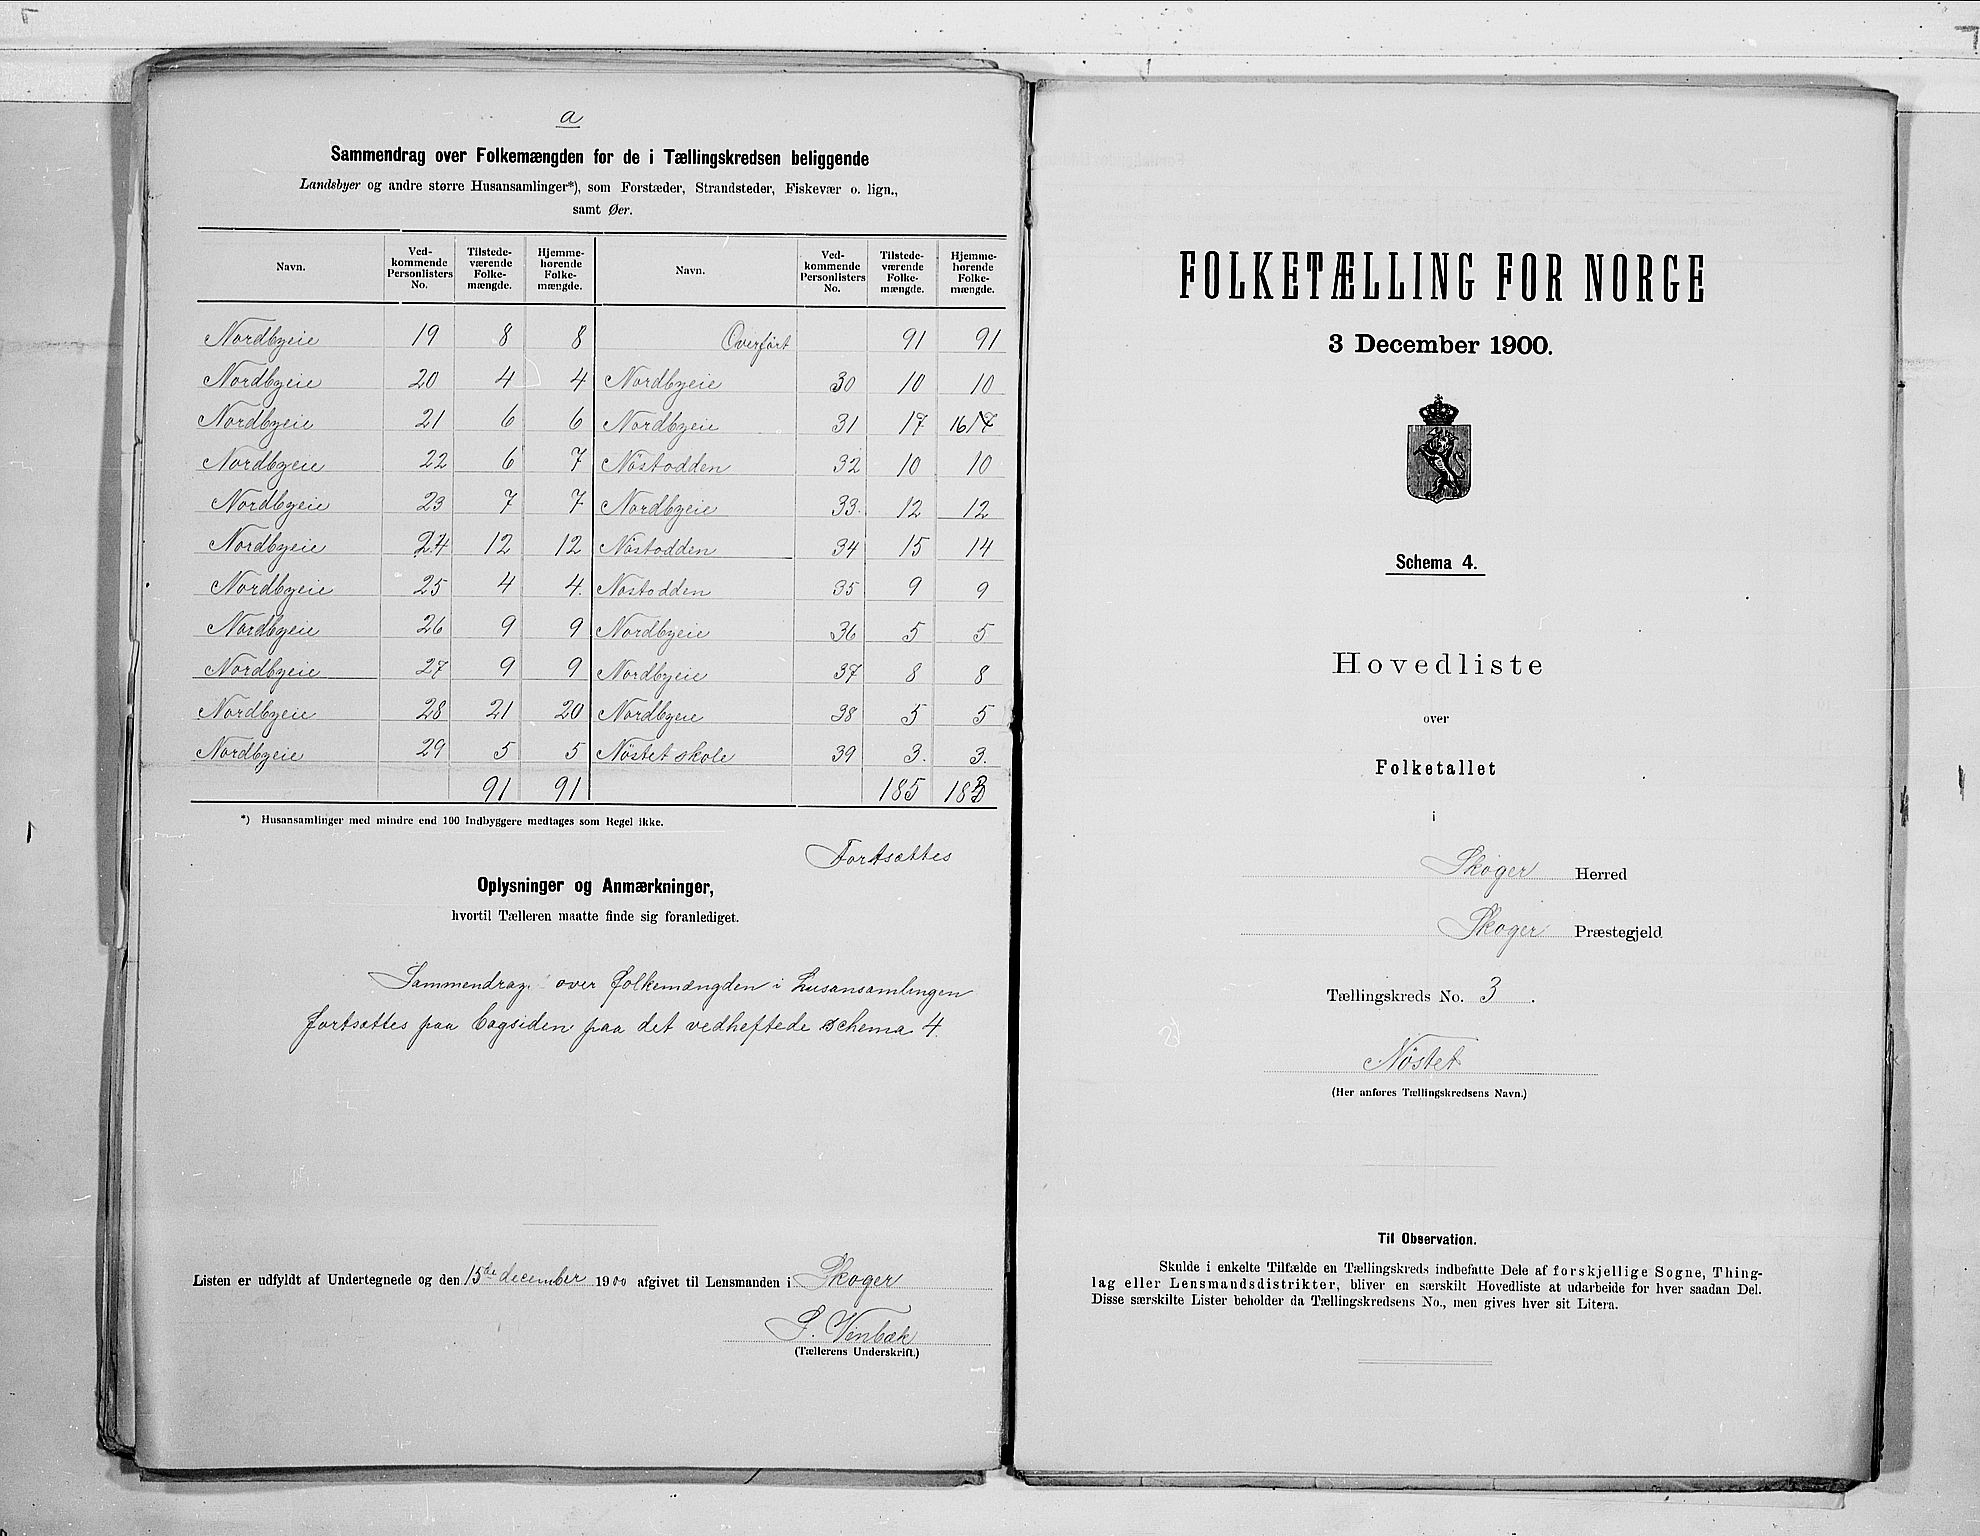 a
Sammendrag over Folkemængden for de i Tællingskredsen beliggende
Landsbyer og andre større Husansamlinger*), som Forstæder, Strandsteder, Fiskevær o. lign.,
samt Øer.
Navn. Ved-kommende Personlisters No. Tilstede-værende Folke-mængde. Hjemme-hørende Folke-mængde. Navn. Ved-kommende Personlisters No. Tilstede-værende Folke-mængde. Hjemme-hørende Folke-mængde.
Nordbyeie 19 8 8 Overført 91 91
Nordbyeie 20 4 4 Nordbyeie 30 10 10
Nordbyeie 21 6 6 Nordbyeie 31 17 16 17
Nordbyeie 22 6 7 Nöstodden 32 10 10
Nordbyeie 23 7 7 Nordbyeie 33. 12 12
Nordbyeie 24 12 12 Nöstodden 34 15 14
Nordbyeie 25 4 4. Nöstodden 35 9 9
Nordbyeie 26 9 9 Nordbyeie 36 5 5
Nordbyeie 27 9 9 Nordbyeie 37 8 8
Nordbyeie 28 21 20 Nordbyeie 38 5 5
Nordbyeie 29 5 5 Nöstet skole 39 3. 3.
91 91 185 183
*) Husansamlinger med mindre end 100 Indbyggere medtages som Regel ikke.
Fortsættes
Oplysninger og Anmærkninger,
hvortil Tælleren maatte finde sig foranlediget.
Sammendrag over folkemængden i husansamlingen
fortsættes paa bagsiden paa det vedheftede schema 4.
Listen er udfyldt af Undertegnede og den 15de december 1900 afgivet til Lensmanden i Skoger
S. Vinbæk
(Tællerens Underskrift.)
FOLKETÆLLING FOR NORGE
3 December 1900.
Schema 4.
Hovedliste
over
Folketallet
i
Skoger Herred
Skoger Præstegjeld
Tællingskreds No. 3.
Nöstet
(Her anføres Tællingskredsens Navn.)
Til Observation.
Skulde i enkelte Tilfælde en Tællingskreds indbefatte Dele af forskjellige Sogne, Thing-
lag eller Lensmandsdistrikter, bliver en særskilt Hovedliste at udarbeide for hver saadan Del.
Disse særskilte Lister beholder da Tællingskredsens No., men gives hver sit Litera.